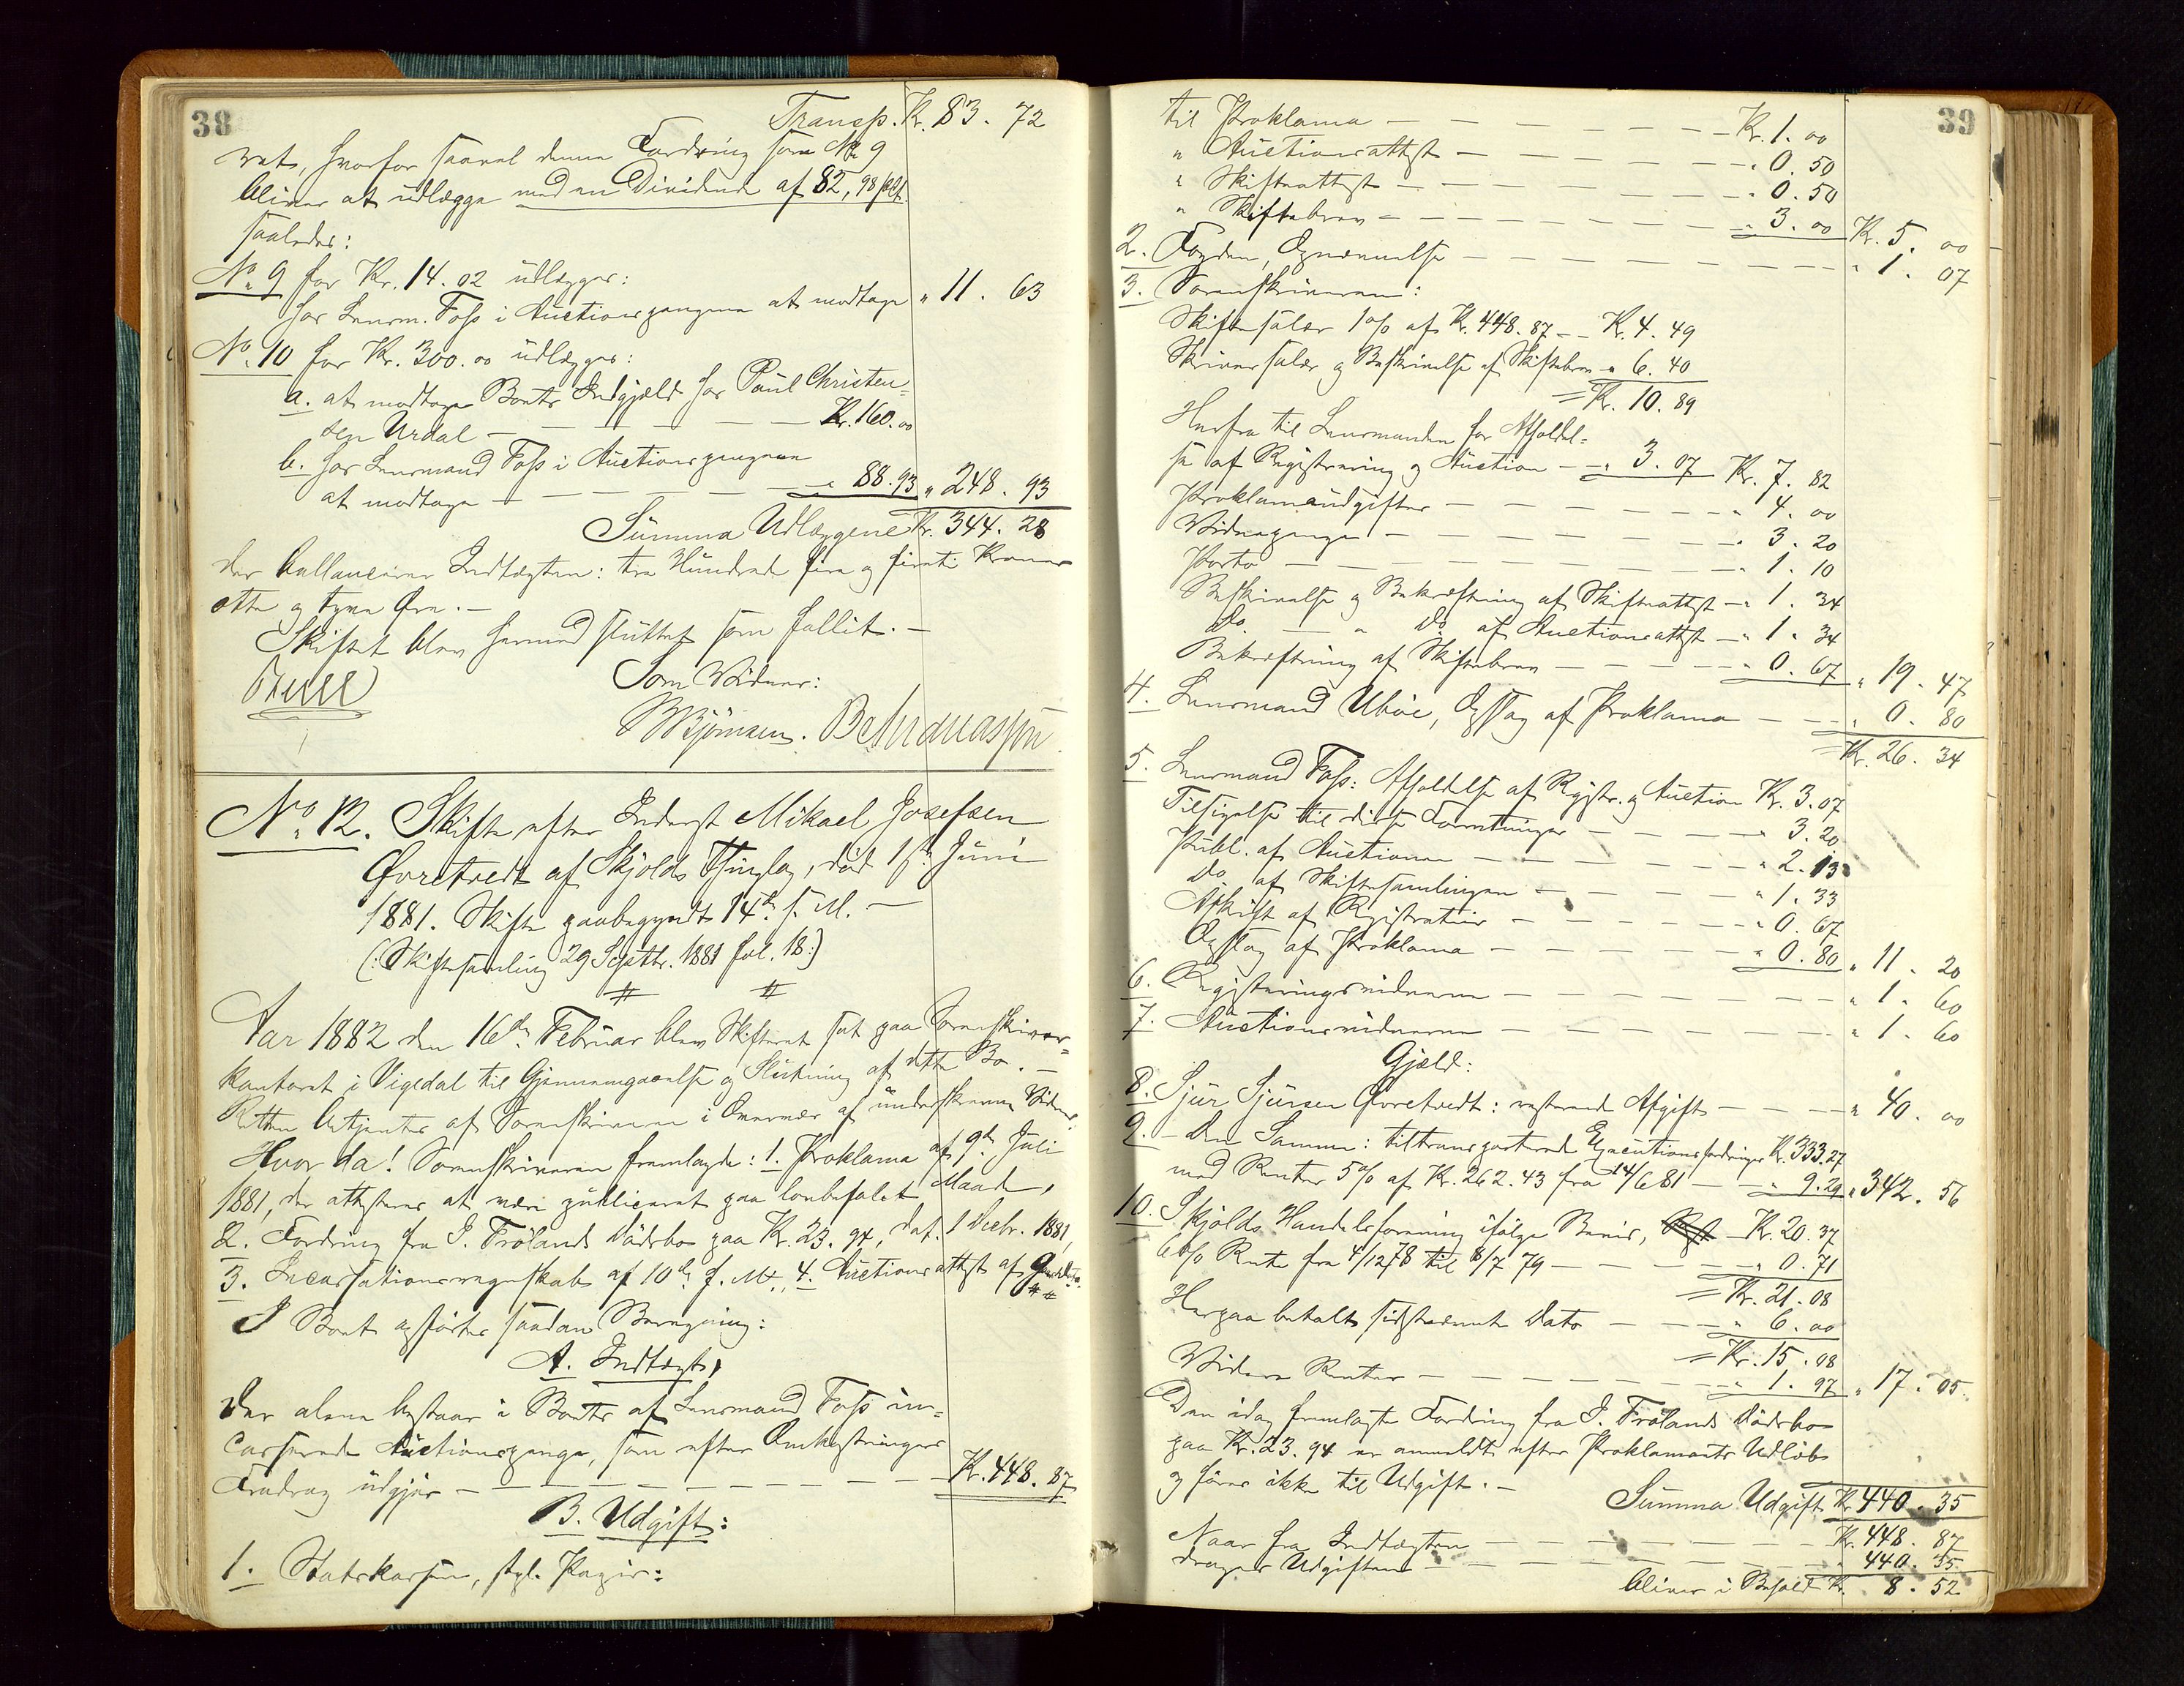 38
Transp. Kr. 83. 72
ret, hvorfor saavel denne Fordring som No 9
bliver at udlægge med en Dividende af 82,98 pCt.
saaledes:
No. 9 for Kr. 14.02 udlægges:
hos Lensm. Foss i Auctionspengene at modtage " 11. 63
No. 10 for Kr. 300.00 udlægges:
a. at modtage Boets Indgjæld hos Paul Christen-
sen Urdal — — — — Kr. 160.00
b. hos Lensmand Foss i Auctionspengene
at modtage — — — — " 88.93 " 248. 93
Summa Udlæggene Kr. 344. 28
der ballancerer Indtægten: tre Hundrede fire og firti Kroner
otte og tyve Øre. —
Skiftet blev hermed sluttet som fallit. —
Som Vidner:
MBjörnsen. B Andreassen
No. 12. Skifte efter Inderst Mikael Josefsen
Øvretvedt af Skjolds Thinglag, död 1ste Juni
1881. Skifte paabegyndt 14de s. M. —
(: Skiftesamling 29 Septbr. 1881 fol. 18 :)
Aar 1882 den 16de Februar blev Skifteret sat paa Sorenskriver-
kontoret i Vigedal til Gjennemgaaelse og Slutning af dette Bo. —
Retten betjentes af Sorenskriveren i Overvær af underskrevne Vidner.
Hvor da! Sorenskriveren fremlagde: 1. Proklama af 9de Juli
1881, der attesteres at være publiceret paa lovbefalet Maade,
2. Fordring fra J. Frölands Dödsbo paa Kr. 23.94, dat. 1 Decbr. 1881,
3. Incassationsregnskab af 10de d. M., 4. Auctionsattest af
I Boet opførtes saadan Beregning:
A. Indtægt,
der alene bestaar i Boets af Lensmand Foss in-
casserede Auctionspenge, som efter Omkostningers
Fradrag udgjör — — — — Kr. 448. 87
B. Udgift:
1. Statskassen, stpl. Papir:
39
til Proklama — — — — Kr. 1. 00
" Auctionsattest — — — — " 0. 50
" Skifteattest — — — — " 0. 50
" Skiftebrev — — — — " 3. 00 Kr. 5. 00
2. Fogden, Opnævnelse — — — — " 1. 07
3. Sorenskriveren:
Skiftesalær 1 % af Kr. 448.87 — Kr. 4. 49
Skriversalær og Beskrivelse af Skiftebrev " 6. 40
= Kr. 10. 89
Herfra til Lensmanden for Afholdel-
se af Registrering og Auction — " 3. 07 Kr. 7. 82
Proklamaudgifter — — — — " 4. 00
Vidnepenge — — — — " 3. 20
Porto — — — — " 1. 10
Beskrivelse og Bekræftning af Skifteattest — " 1. 34
Do. — " Do. af Auctionsattest — " 1. 34
Bekræftning af Skiftebrev — — — " 0. 67 " 19. 47
4. Lensmand Uböe, Opslag af Proklama — — " 0. 80
= Kr. 26. 34
5. Lensmand Foss: Afholdelse af Regstr. og Auction Kr. 3. 07
Tilsigelse til disse Forretninger — — — " 3. 20
Publ. af Auctionen — — — " 2. 13
Do. af Skiftesamlingen — — — " 1. 33
Afskrift af Registratur — — — " 0. 67
Opslag af Proklama — — — " 0. 80 " 11. 20
6. Registeringsvidnerne — — — — " 1. 60
7. Auctionsvidnerne — — — — " 1. 60
Gjæld:
8. Sjur Sjursen Øvretvedt: resterende Afgift — — — " 40. 00
9. — Den Samme: tiltransporterede Executionsfordringer Kr. 333.27
med Renter 5 % af Kr. 262.43 fra 14/6 81 — — " 9.29 " 342. 56
10. Skjolds Handelsforening ifölge Bevis, Kr. 20. 37
6 % Rente fra 4/12 78 til 8/7 79 — — — " 0. 71
= Kr. 21. 08
Herpaa betalt sidstnævnte Dato — — " 6. 00
= Kr. 15. 08
Videre Renter — — — — " 1. 97 " 17. 05
Den idag fremlagte Fordring fra J. Frölands Dödsbo
paa Kr. 23.94 er anmeldt efter Proklamaets Udløb
og föres ikke til Udgift. —
Summa Udgift Kr. 440. 35
Naar fra Indtægten — — — — Kr. 448. 87
drages Udgiften — — — — " 440. 35
bliver i Behold Kr. 8. 52